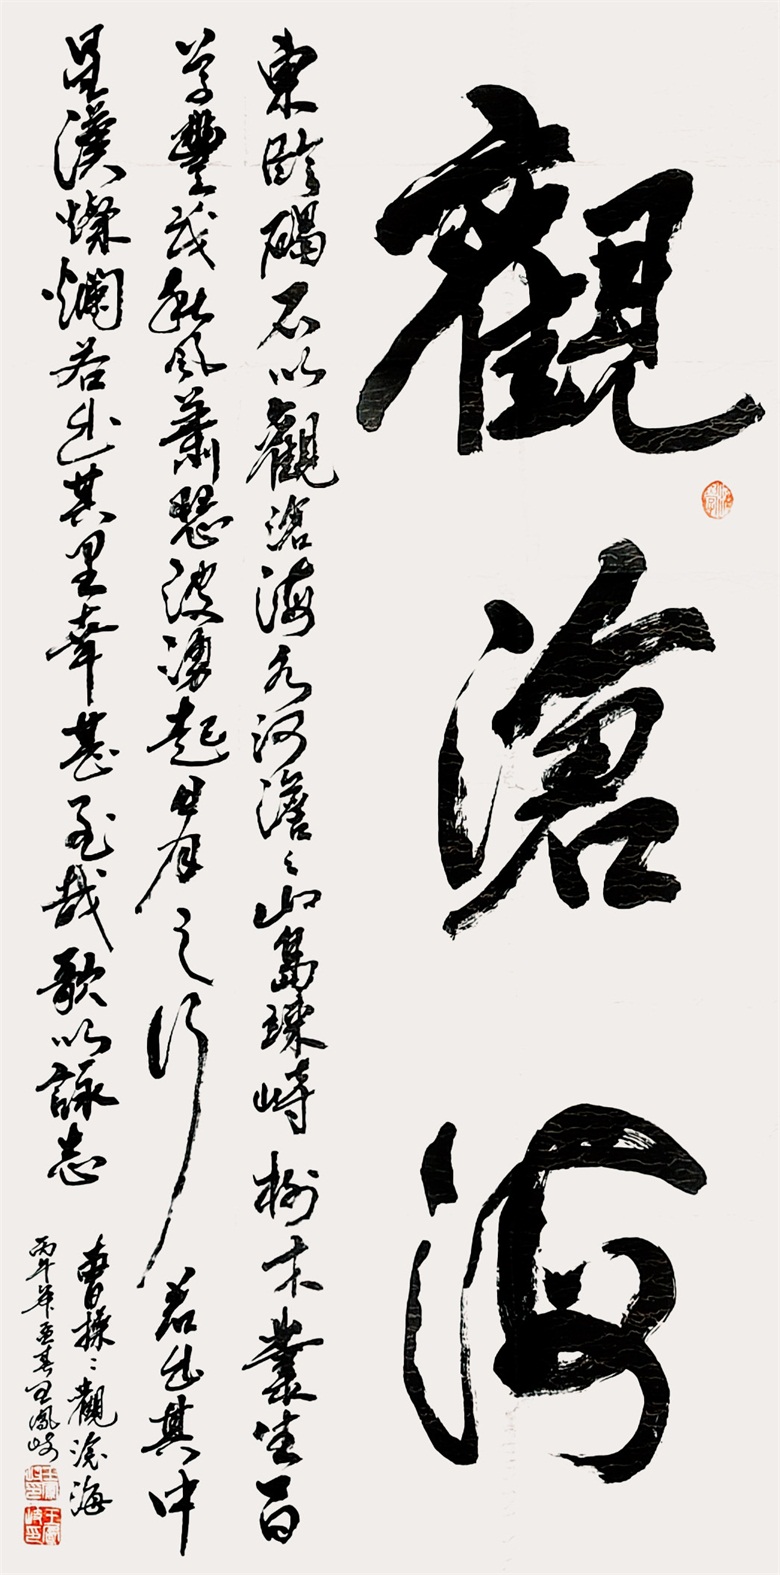 觀滄海
東臨碣石以觀滄海水河澹〻山島竦峙樹木叢生百
草豐茂秋風蕭瑟波湧起日月之行若出其中
星漢燦爛若出其里幸甚至哉歌以詠志
曹操〻觀滄海
丙午年春王鳳岐